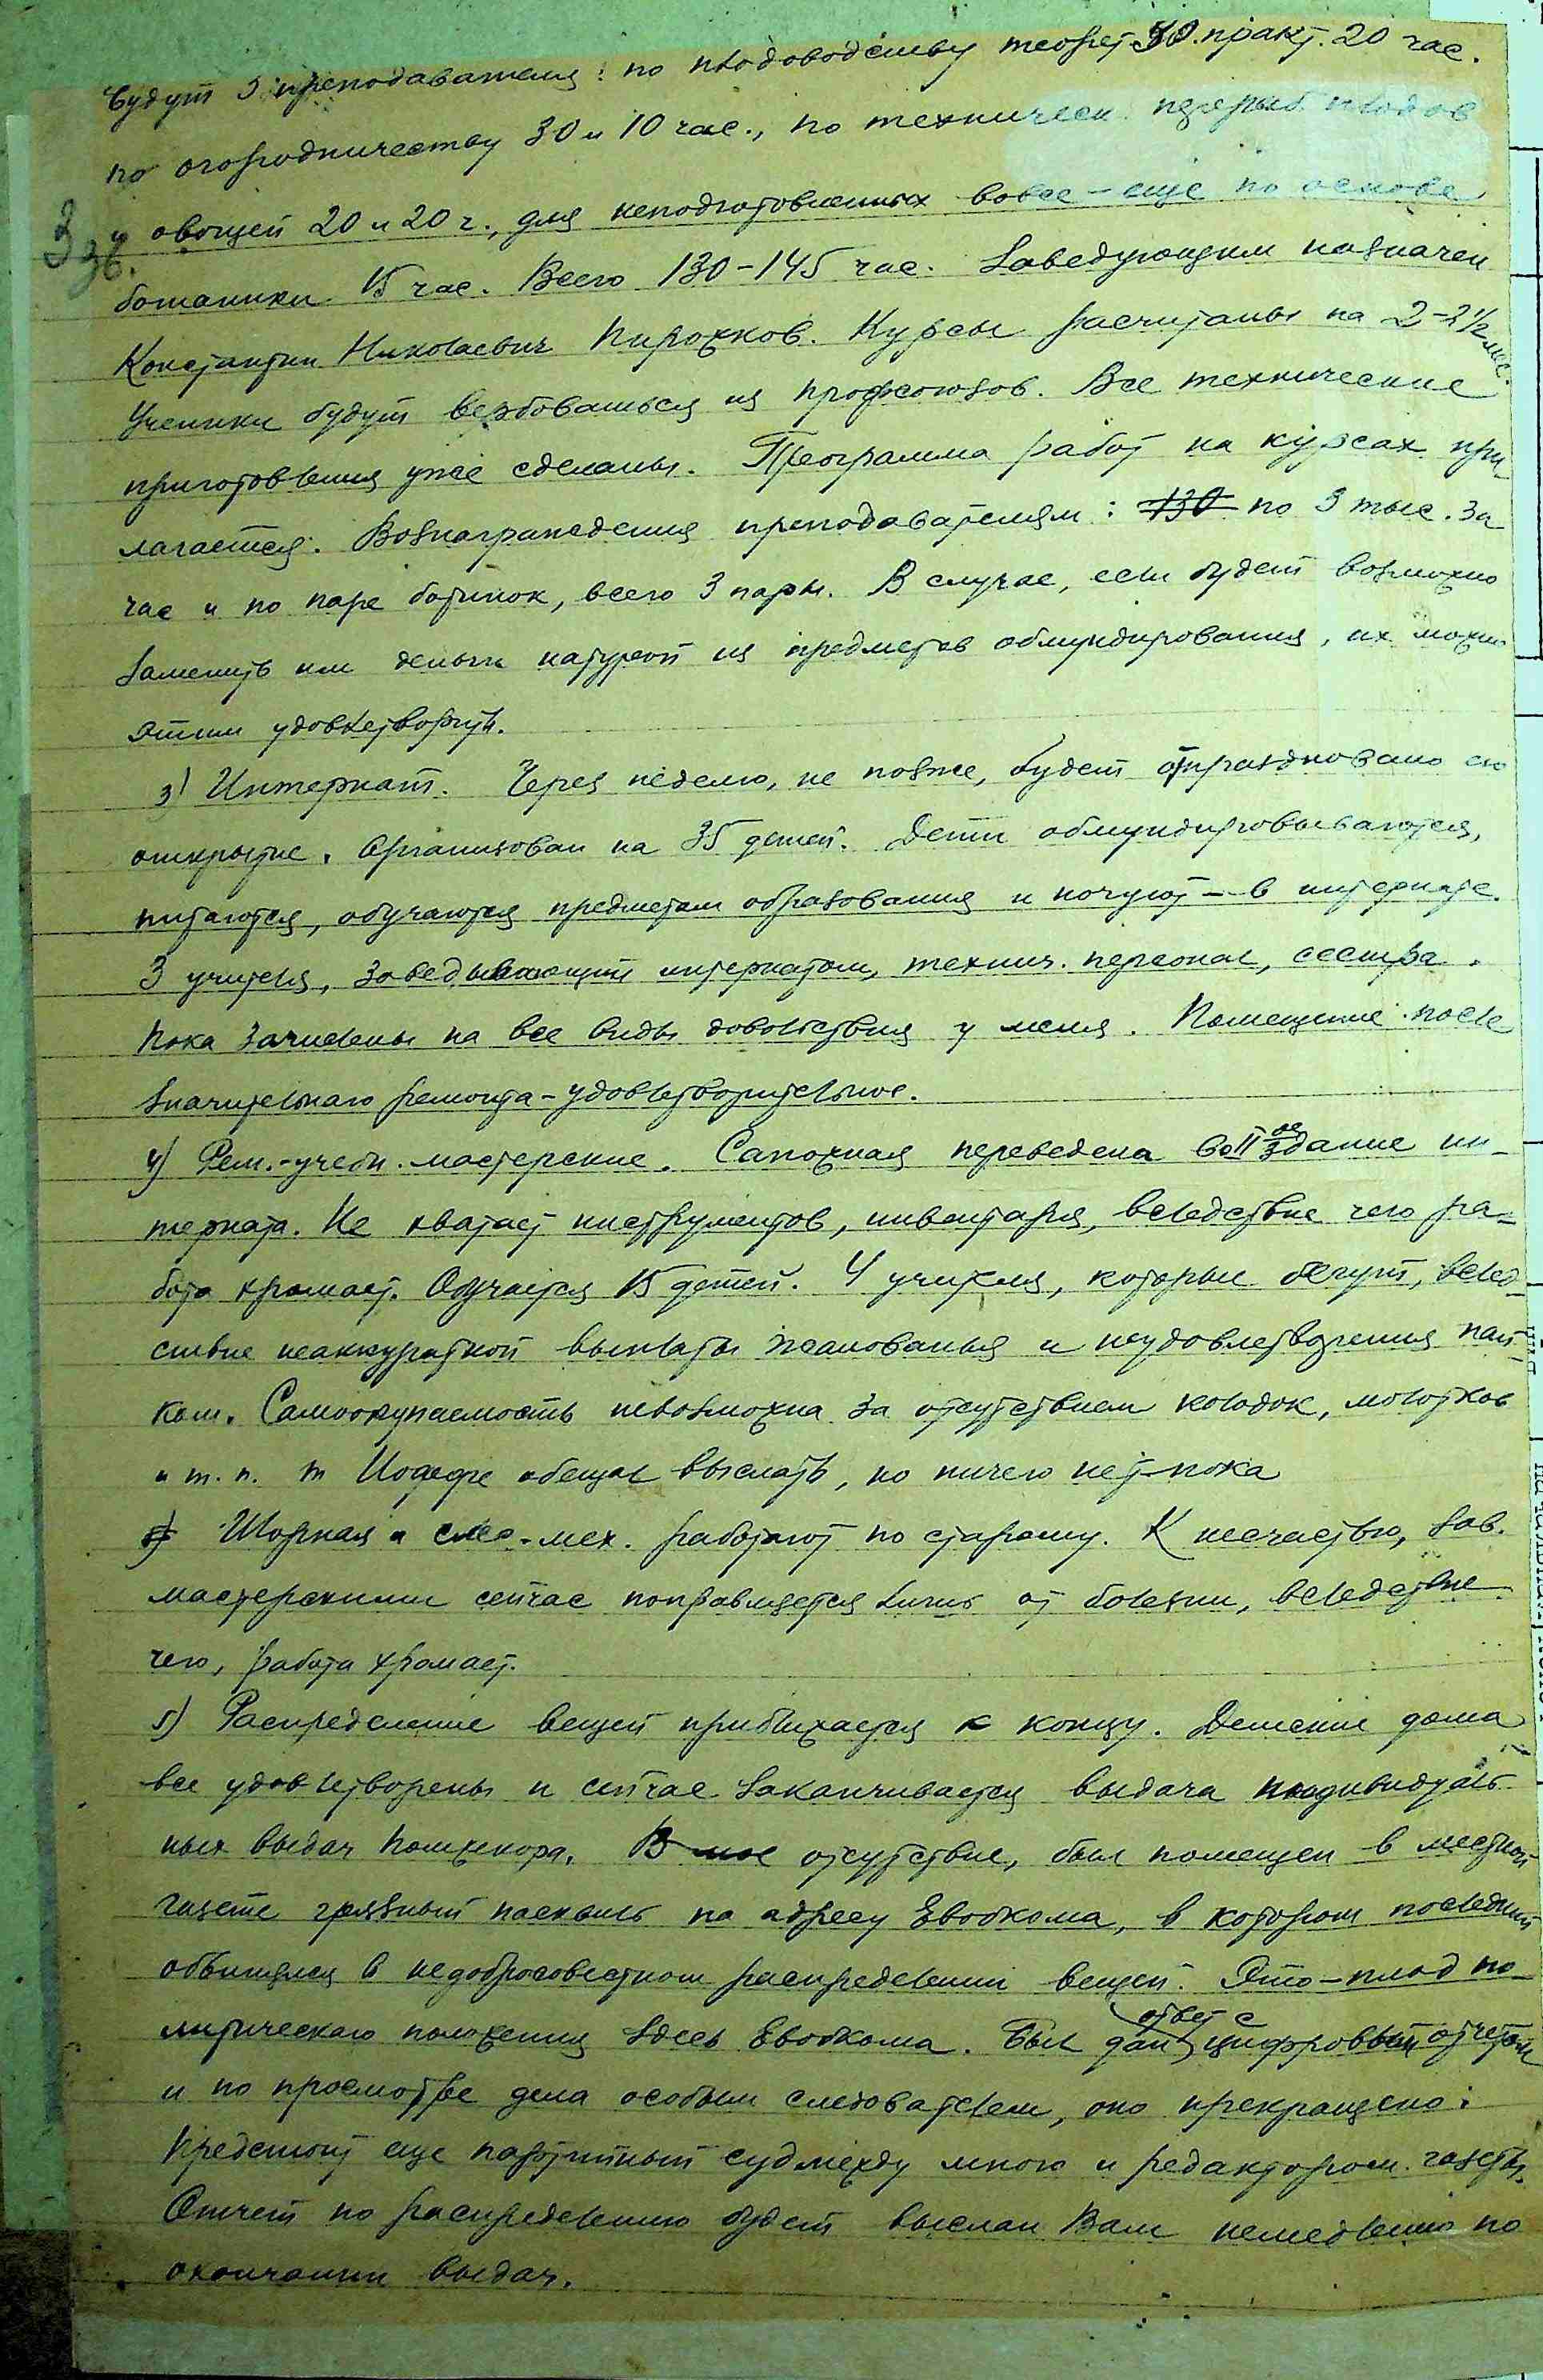 будут 3 преподавателя: по плодоводству теорет. 30. практ. 20 час.
по огородничеству 30 и 10 час., по техническ. перераб. плодов
и овощей 20 и 20 г., для неподготовленных вовсе – еще по основе
ботаники 15 час. Всего 130-145 час. Заведующим назначен
Константин Николаевич Пирожков. Курсы расчитаны на 2-2½ мес.
Ученики будут вербоваться из профсоюзов. Все технические
приготовления уже сделаны. Программа работ на курсах при-
лагается. Вознаграждения преподавателям: 130 по 3 тыс. за
час и по паре ботинок, всего 3 пары. В случае, если будет возможно
заменить им деньги натурой из предметов обмундирования, их можно
этим удовлетворить.
3) Интернат. Через неделю, не позже, будет отпраздновано его
открытие. Организован на 35 детей. Дети обмундировываются,
питаются, обучаются предметам образования и ночуют – в интернате.
3 учителя, заведывающий интернатом, технич. персонал, сестра.
Пока зачислены на все виды довольствия у меня. Помещение после
значительнаго ремонта – удовлетворительное.
4) Рем.-учебн. мастерские. Сапожная переведена во II ое здание ин-
терната. Не хватает инструментов, инвентаря, вследствие чего ра-
бота хромает. Обучается 15 детей. 4 учителя, которые бегут, вслед-
ствие неаккуратной выплаты жалованья и неудовлетворения пай-
ком. Самоокупаемость невозможна за отсутствием колодок, молотков
и т. п. т Иоффе обещал выслать, но ничего нет пока
Шорная и слес.-мех. работают по старому. К несчастью, зав.
мастерскими сейчас поправляется лишь от болезни, вследствие
чего, работа хромает.
5) Распределение вещей приближается к концу. Детские дома
все удовлетворены и сейчас заканчивается выдача индивидуаль-
ных выдач Помжекора. В мое отсутствие, был помещен в местной
газете грязный пасквиль по адресу Евобкома, в котором последний
обвинялся в недобросовестном распределении вещей. Это – плод по-
литическаго положения здесь Евобкома. Был дан ответ с цифровым отчетом
и по просмотре дела особым следователем, оно прекращено.
Предстоит еще партийный суд между мною и редактором газеты.
Отчет по распределению будет выслан Вам немедленно по
окончании выдач.